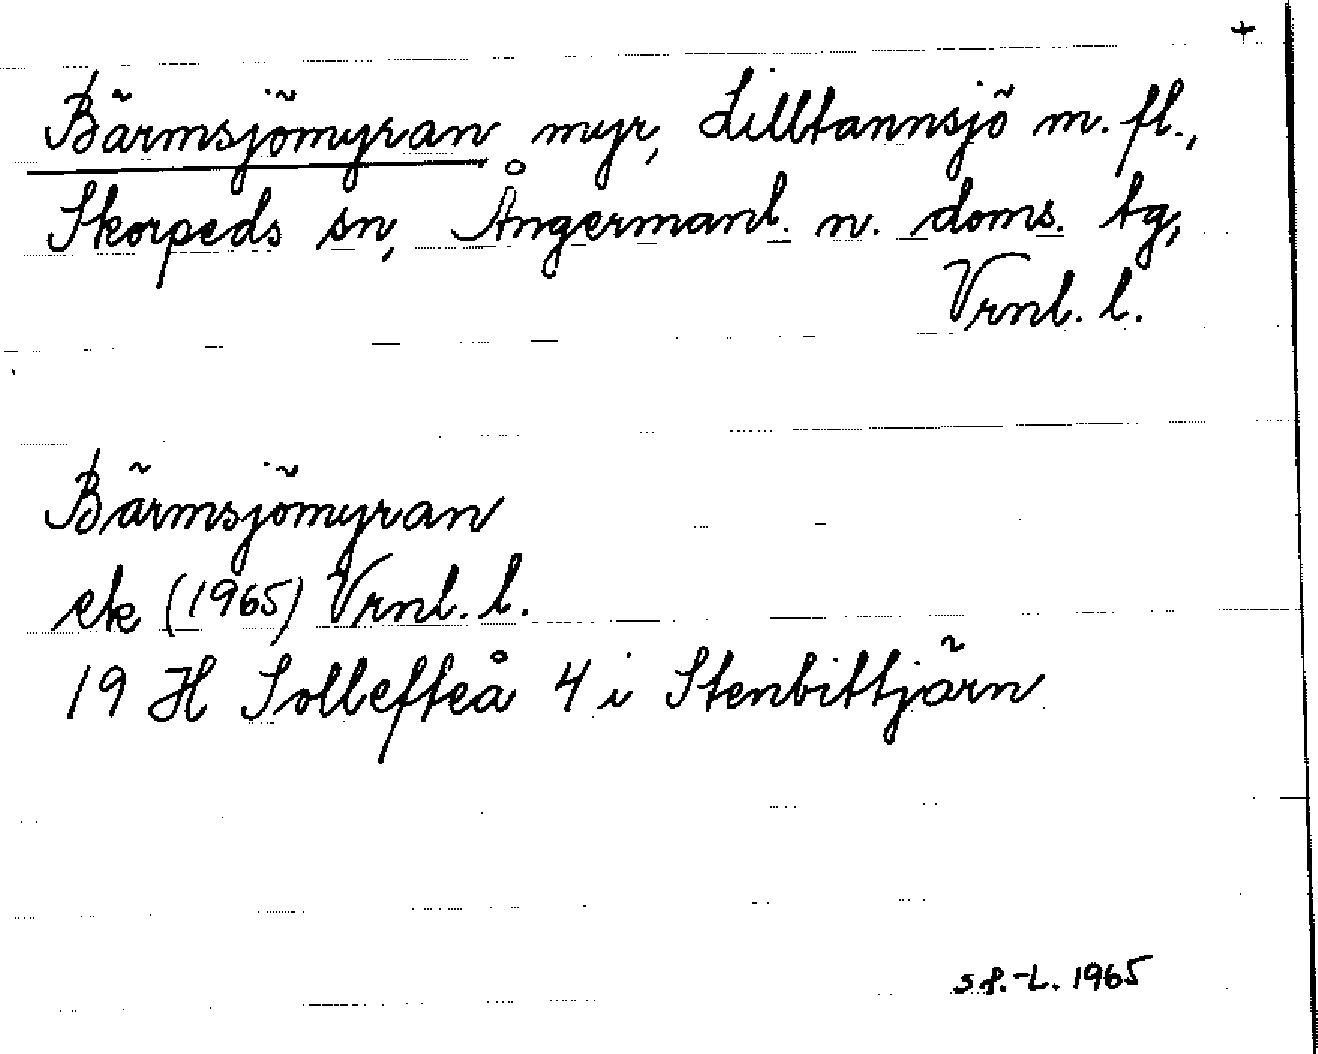 +
Bärmsjömyran myr, Lilltannsjö m. fl.,
Skorpeds sn, Ångermanl. n. doms. tg,
Vrnl. l.
Bärmsjömyran
ek (1965) Vrnl. l.
19 H Sollefteå 4 i Stenbittjärn
1965